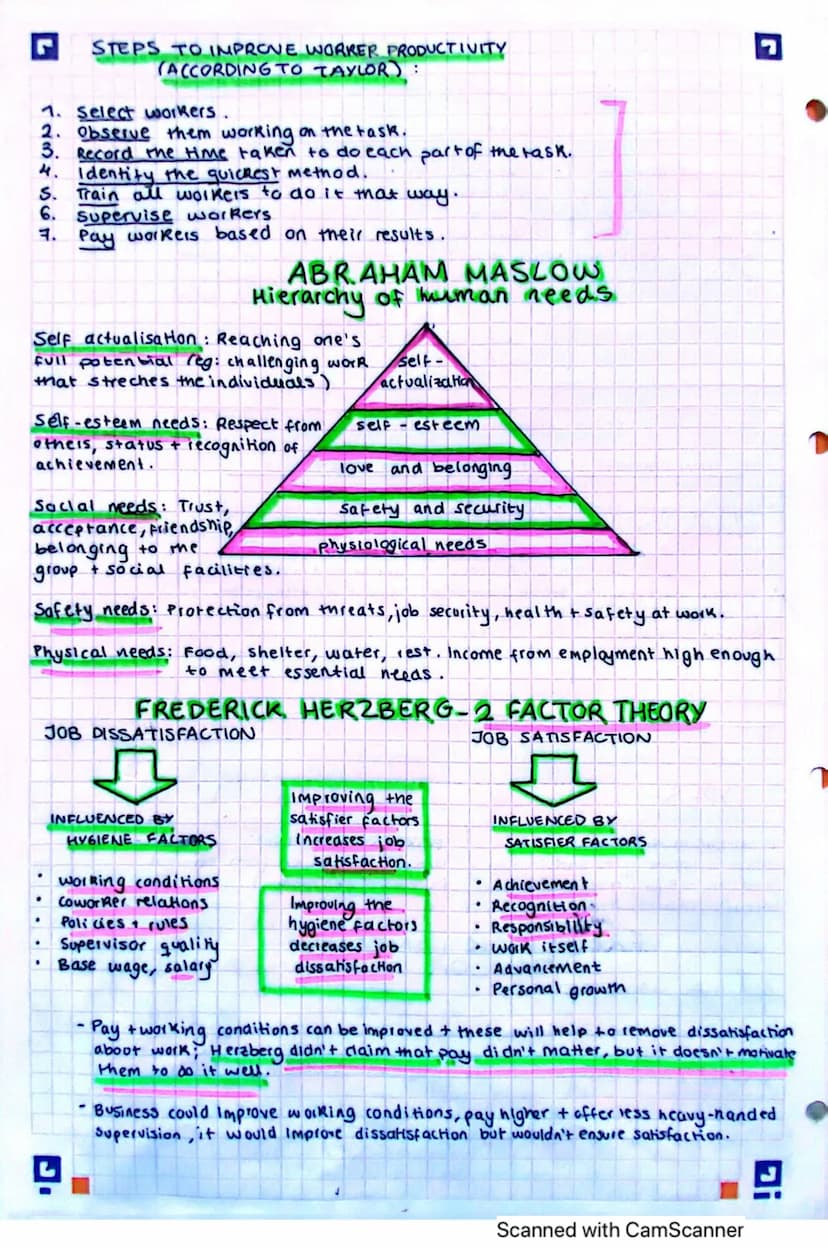 STEPS TO IMPROVE WORKER PRODUCTIVITY
(ACCORDING TO TAYLOR) :
1. Select workers.
2. Observe them working on the task.
3. Record the time taken to do each part of the task.
4. Identity the quickest method.
5. Train all workers to do it that way.
6. Supervise workers
7. Pay workers based on their results.
ABRAHAM MASLOW
Hierarchy of human needs
Self actualisation : Reaching one's
full potential (eg: challenging work
that streches the individuals)
Self-esteem needs: Respect from
others, status + recognition of
achievement.
Social needs: Trust,
acceptance, friendship,
belonging to the
group + social facilities.
self-
actualization
self - esteem
love and belonging
safety and security
physiological needs
Safety needs: Protection from threats, job security, health + safety at work.
Physical needs: Food, shelter, water, rest. Income from employment high enough
to meet essential needs.
FREDERICK HERZBERG-2 FACTOR THEORY
JOB DISSATISFACTION
INFLUENCED BY
HYGIENE FACTORS
• working conditions
• coworker relations
• Policies + rules
• Supervisor quality
• Base wage, salary
Improving the
satisfier factors
Increases job
satisfaction.
Improving the
hygiene factors
decreases job
dissatisfaction
JOB SATISFACTION
INFLUENCED BY
SATISFIER FACTORS
• Achievement
• Recognition
• Responsibility
• Work itself
• Advancement
• Personal growth
- Pay + working conditions can be improved + these will help to remove dissatisfaction
about work; Herzberg didn't claim that pay didn't matter, but it doesn't motivate
them to do it well.
- Business could improve working conditions, pay higher + offer less heavy-handed
supervision, it would improve dissatisfaction but wouldn't ensure satisfaction.
Scanned with CamScanner